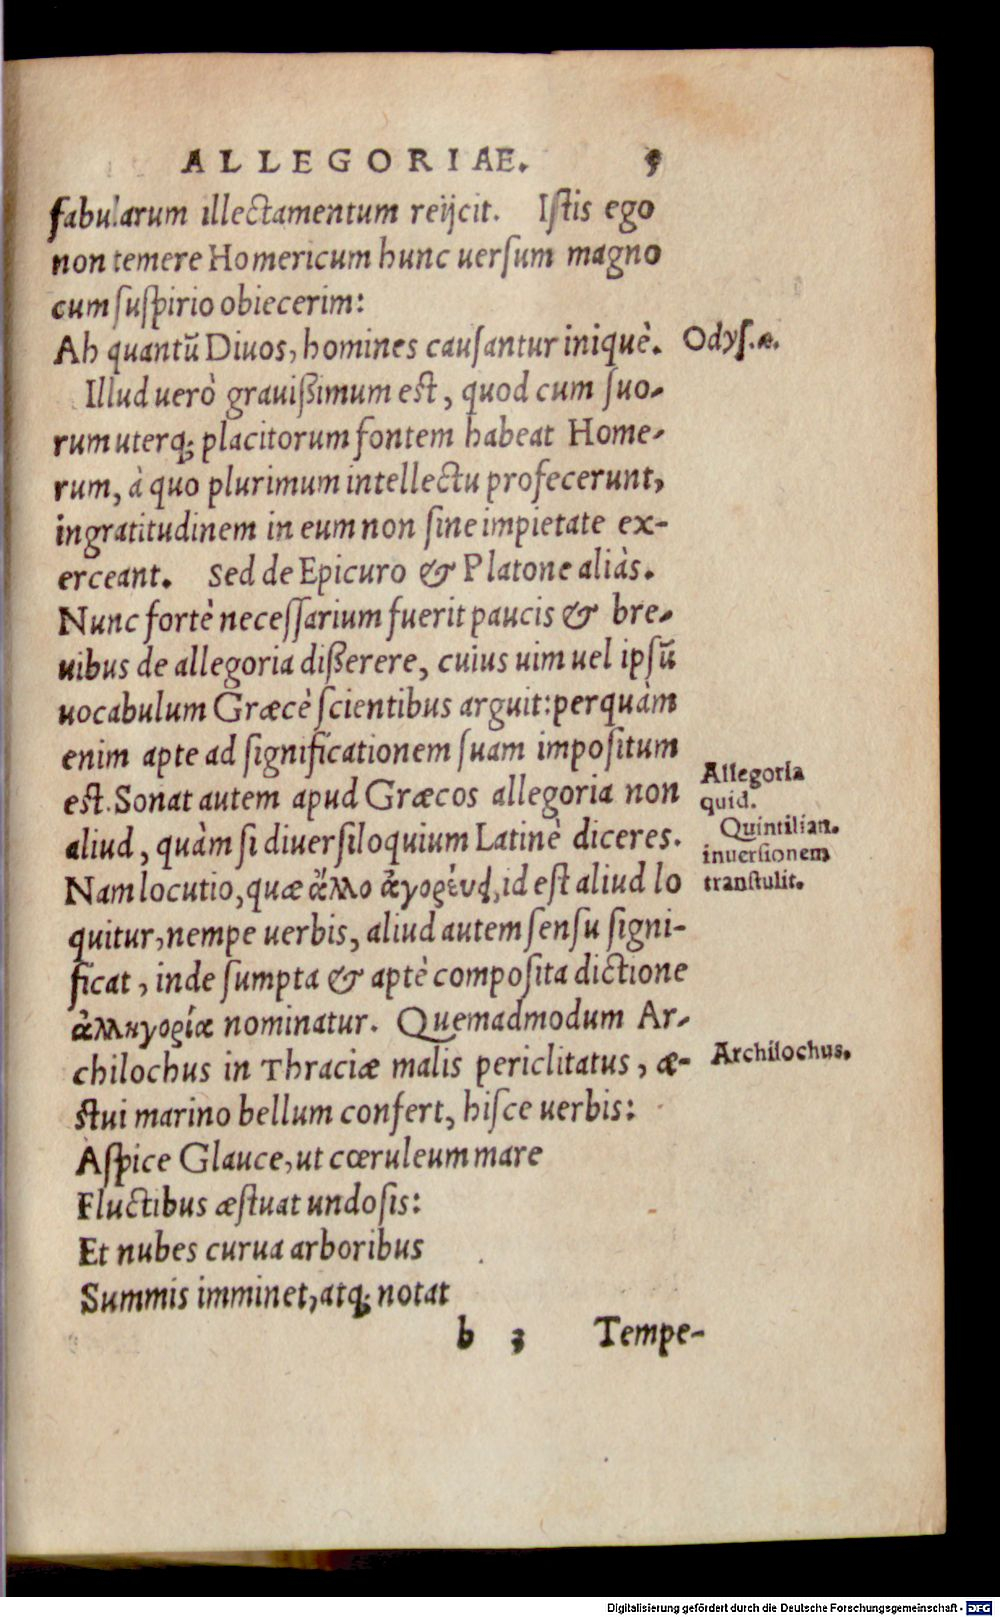 ALLEGORIAE. 5
fabularum illectamentum reijcit. Istis ego
non temere Homericum hunc uersum magno
cum suspirio obiecerim:
Ah quantū Diuos, homines causantur iniquè. Odys.α.
Illud uerò grauißimum est, quod cum suo-
rum uterq; placitorum fontem habeat Home-
rum, à quo plurimum intellectu profecerunt,
ingratitudinem in eum non sine impietate ex-
erceant. Sed de Epicuro & Platone aliàs.
Nunc fortè necessarium fuerit paucis & bre-
uibus de allegoria dißerere, cuius uim uel ipsū
uocabulum Græcè scientibus arguit: perquàm
enim apte ad significationem suam impositum
est. Sonat autem apud Græcos allegoria non
aliud, quàm si diuersiloquium Latinè diceres.
Nam locutio, quæ ἄλλο ἀγορεύει, id est aliud lo
quitur, nempe uerbis, aliud autem sensu signi-
ficat, inde sumpta & aptè composita dictione
ἀλληγορία nominatur. Quemadmodum Ar-
chilochus in Thraciæ malis periclitatus, æ-
stui marino bellum confert, hisce uerbis:
Aspice Glauce, ut cœruleum mare
Fluctibus æstuat undosis:
Et nubes curua arboribus
Summis imminet, atq; notat
b 3 Tempe-
Allegoria
quid.
Quintilian.
inuersionem
transtulit.
Archilochus.
Digitalisierung gefördert durch die Deutsche Forschungsgemeinschaft - DFG